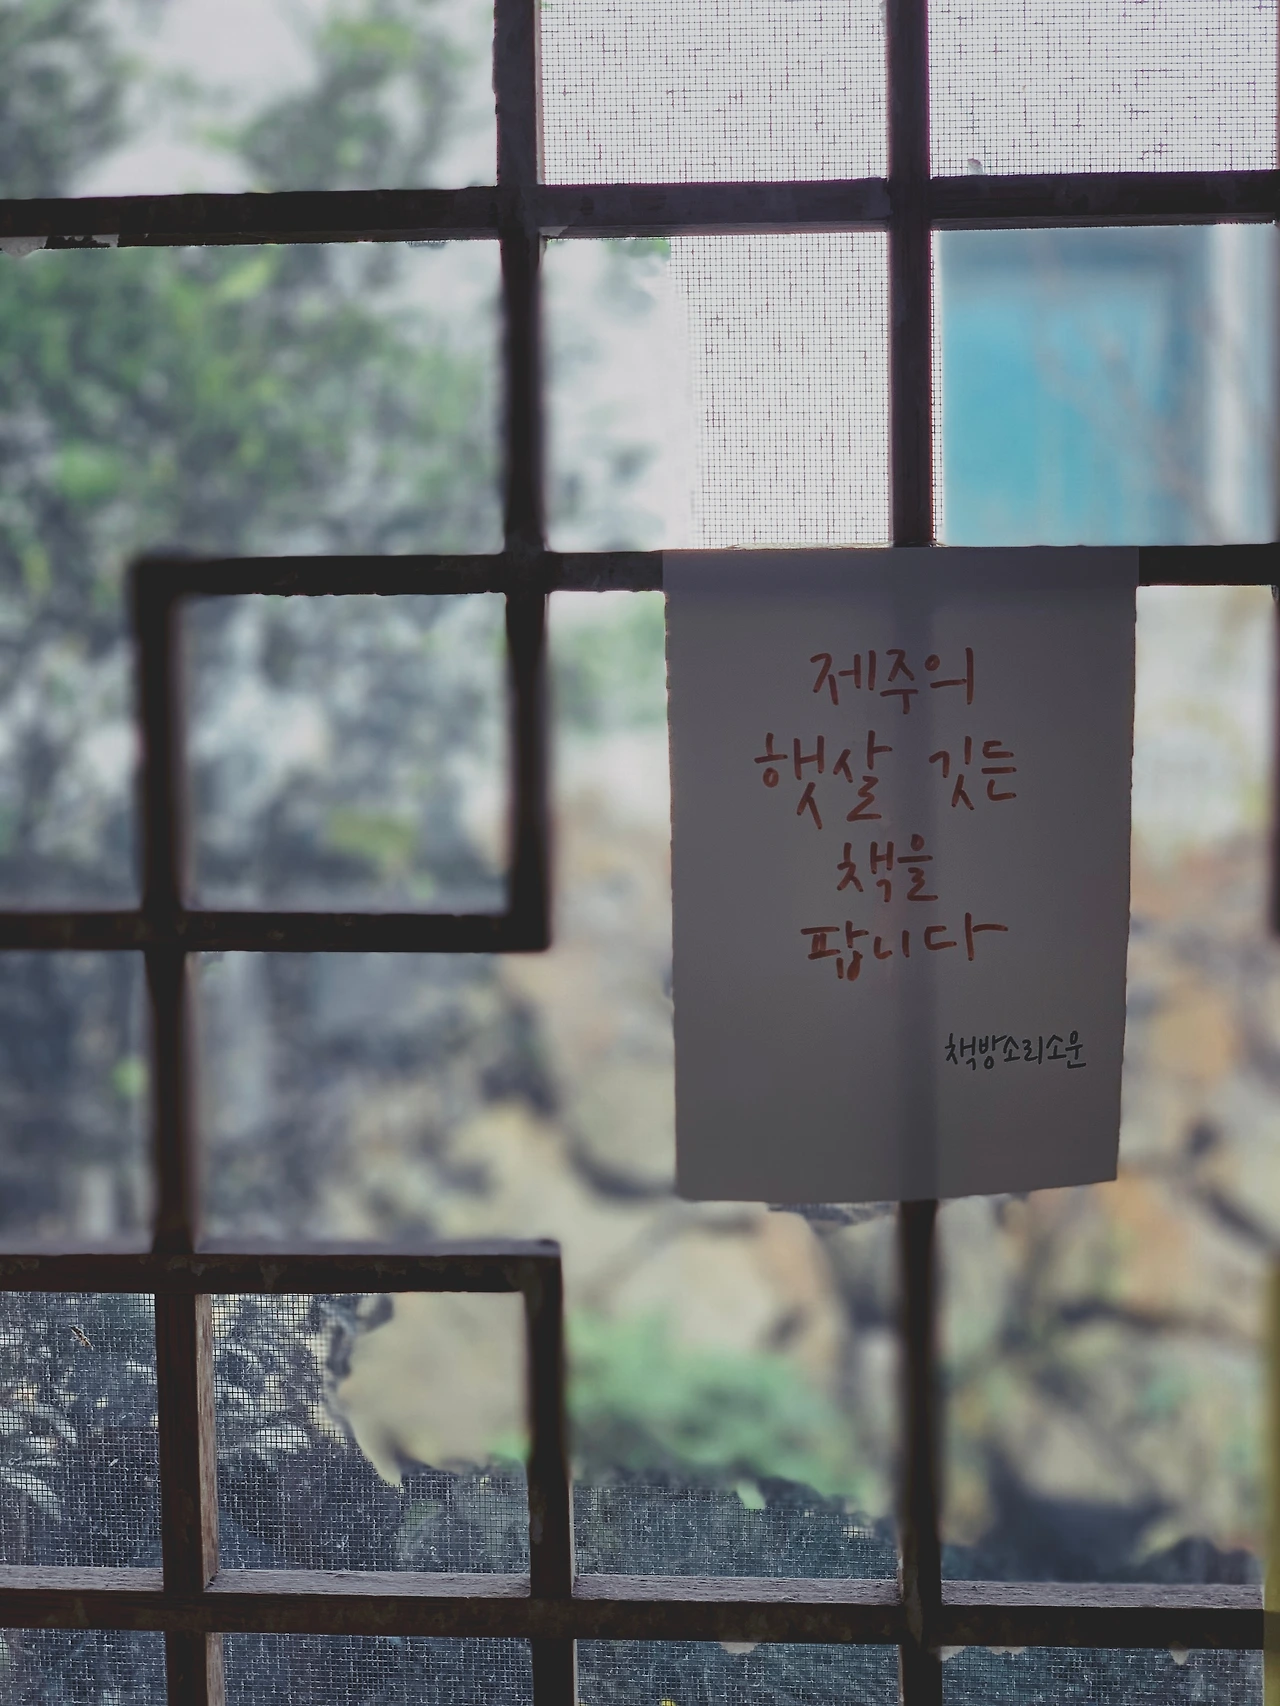 제주의
햇살 깃든
책을
팝니다
책방소리소문